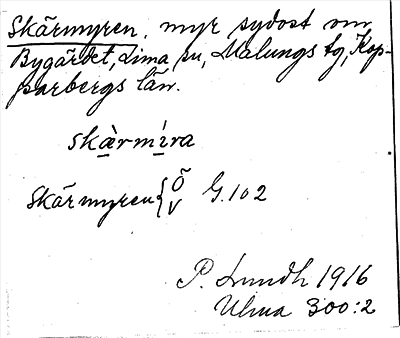 Skärmyren, myr sydost om
Bygärdet, Lima sn, Malungs tg, Kop-
parbergs län.
skæ̀rmı́ra
Skärmyren { Ö G.102
V
P. Lundh 1916
Ulma 300:2